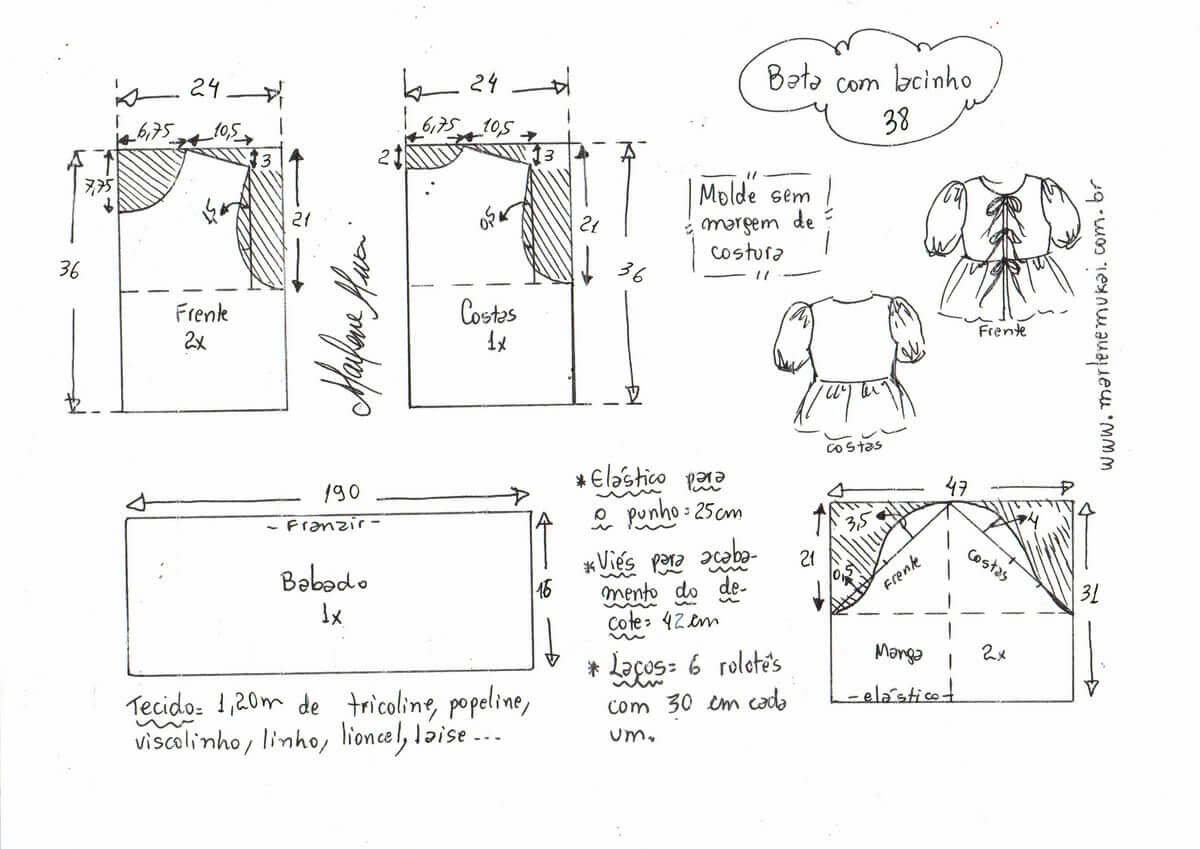 Bata com lacinho
38
Molde sem
margem de
costura
24
6,75
10,5
7,75
3
21
36
Frente
2x
24
6,75
10,5
2
3
0,5
21
36
Costas
1x
Frente
costas
www.marlenemukai.com.br
190
- Franzir -
Babado
1x
16
* Elástico para
o punho = 25cm
* Viés para acaba-
mento do de-
cote = 42cm
* Laços = 6 rolotês
com 30 cm cada
um.
47
3,5
4
21
0,5
Frente
Costas
31
Manga 2x
- elástico -
Tecido = 1,20m de tricoline, popeline,
viscolinho, linho, lioncel, laise ...